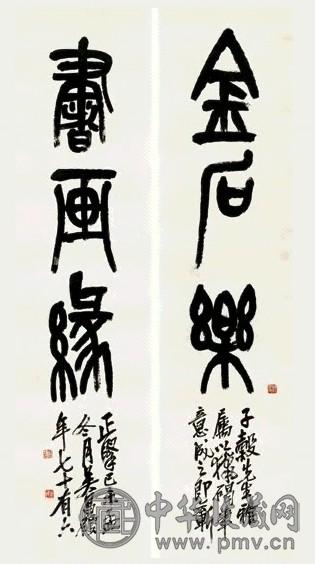 金石樂
子穀先生雅
屬以獵碣筆
意成之即
書画緣
正 己未孟
冬月吳昌碩
年七十有六
中华收藏网
www.pmv.cn